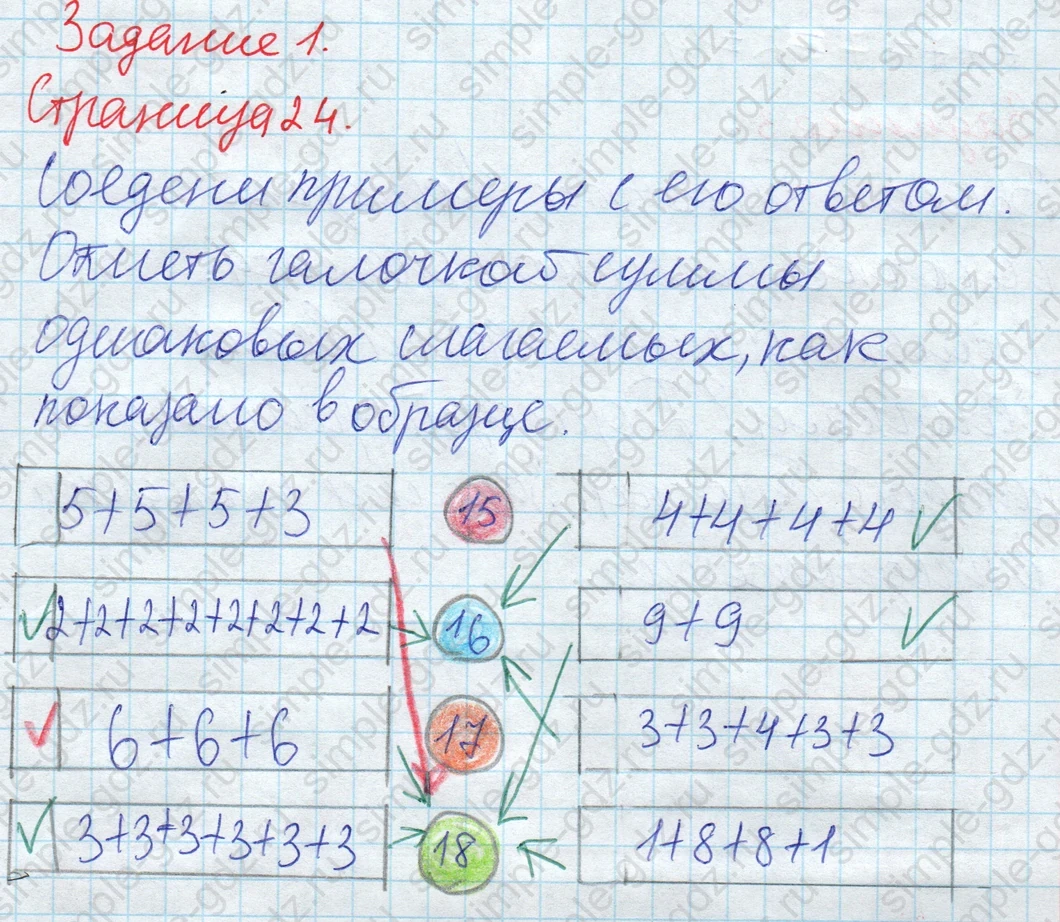 Задание 1.
Страница 24.
Соедени примеры с его ответом.
Отметь галочкой суммы
одинаковых слагаемых, как
показано в образце.
5+5+5+3 15 4+4+4+4 ✓
✓ 2+2+2+2+2+2+2+2 16 9+9 ✓
✓ 6+6+6 17 3+3+4+3+3
✓ 3+3+3+3+3+3 18 1+8+8+1
simple-gdz.ru